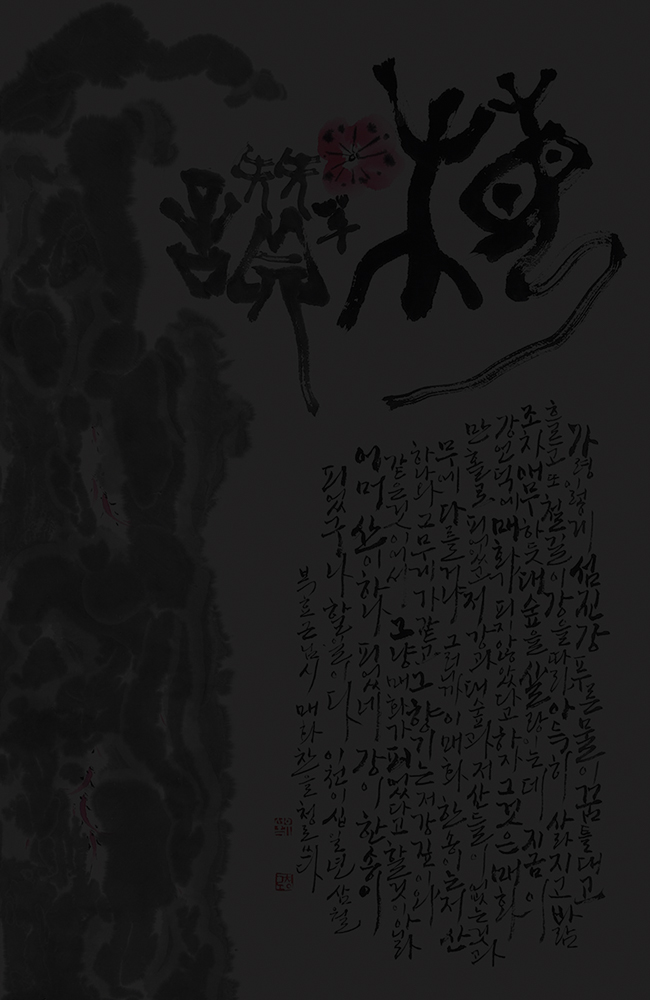 梅 讚
가령 이렇게 섬진강 푸른 물이 꿈틀대고
흐르고 또 철길이 강을 따라 아득히 사라지고 바람
조차 애무하듯 대숲을 살랑이는데 지금 이
강 언덕에 매화가 피지 않았다고 하자 그것은 매화
만 홀로 피어있고 저 강과 대숲과 저 산들이 없는 것과
무에 다를 거냐 그러니까 이 매화 한 송이는 저 산
하나와 그 무게가 같고 그 향기는 저 강 깊이와
같은 것이어서 그냥 매화가 피었다고 할 것이 아니라
어머 산이 하나 피었네 강이 한 송이
피었구나 할 일이다 이천이십일년 삼월
복효근님 시 매화찬을 쓰다